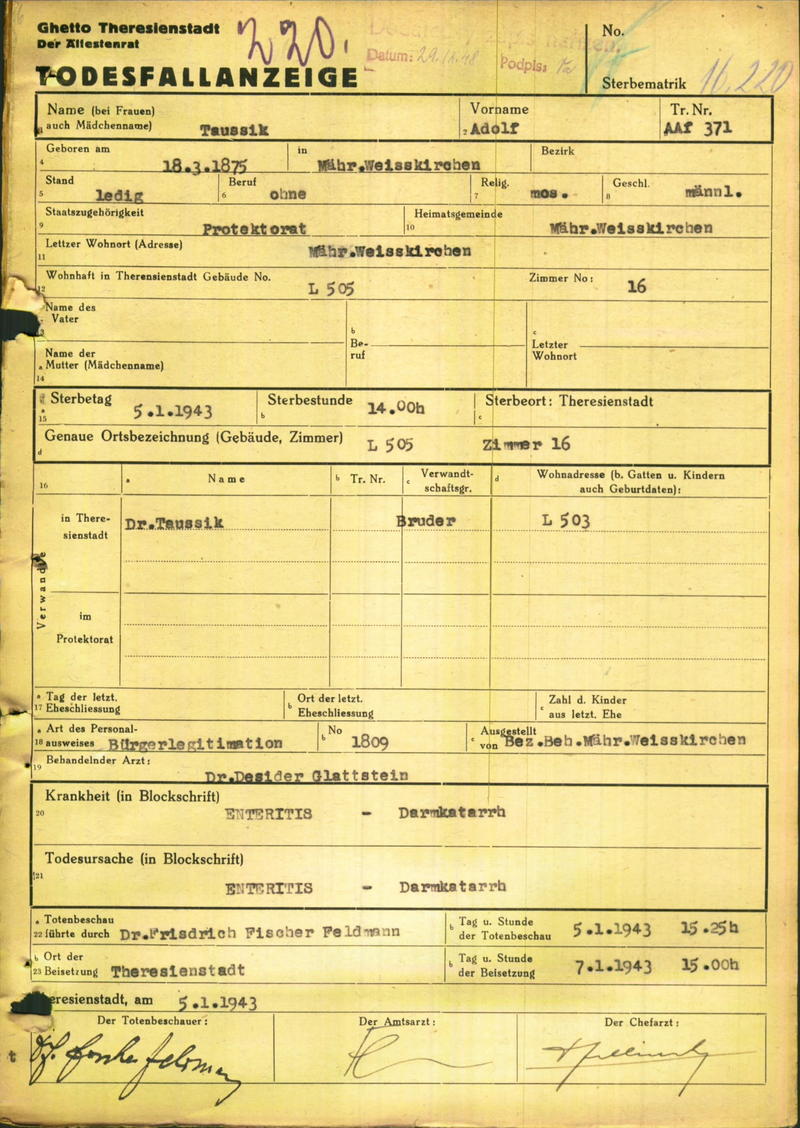 Ghetto Theresienstadt
Der Ältestenrat
220.
Datum: 29.
Podpis:
No.
TODESFALLANZEIGE
Sterbematrik 16.220
Name (bei Frauen) auch Mädchenname) Taussik
Vorname Adolf
Tr. Nr. AAf 371
Geboren am 18.3.1875 in Mähr.Weisskirchen Bezirk
Stand ledig Beruf ohne Relig. mos. Geschl. männl.
Staatszugehörigkeit Protektorat Heimatsgemeinde Mähr.Weisskirchen
Lettzer Wohnort (Adresse) Mähr.Weisskirchen
Wohnhaft in Therensienstadt Gebäude No. L 505 Zimmer No: 16
Name des Vater
Be-ruf
Letzter Wohnort
Name der Mutter (Mädchenname)
Sterbetag 5.1.1943 Sterbestunde 14.00h Sterbeort: Theresienstadt
Genaue Ortsbezeichnung (Gebäude, Zimmer) L 505 Zimmer 16
16 a Name b Tr. Nr. c Verwandt-schaftsgr. d Wohnadresse (b. Gatten u. Kindern auch Geburtdaten):
Verwandte
in There-sienstadt Dr.Taussik Bruder L 503
im Protektorat
17 Tag der letzt. Eheschliessung
b Ort der letzt. Eheschliessung
c Zahl d. Kinder aus letzt. Ehe
18 Art des Personal-ausweises Bürgerlegitimation b No 1809 c Ausgestellt von Bez.Beh.Mähr.Weisskirchen
19 Behandelnder Arzt: Dr.Desider Glattstein
Krankheit (in Blockschrift)
20 ENTERITIS - Darmkatarrh
Todesursache (in Blockschrift)
21 ENTERITIS - Darmkatarrh
22 Totenbeschau führte durch Dr.Frisdrich Fischer Feldmann b Tag u. Stunde der Totenbeschau 5.1.1943 15.25h
23 Ort der Beisetzung Theresienstadt b Tag u. Stunde der Beisetzung 7.1.1943 15.00h
eresienstadt, am 5.1.1943
Der Totenbeschauer: Der Amtsarzt: Der Chefarzt: